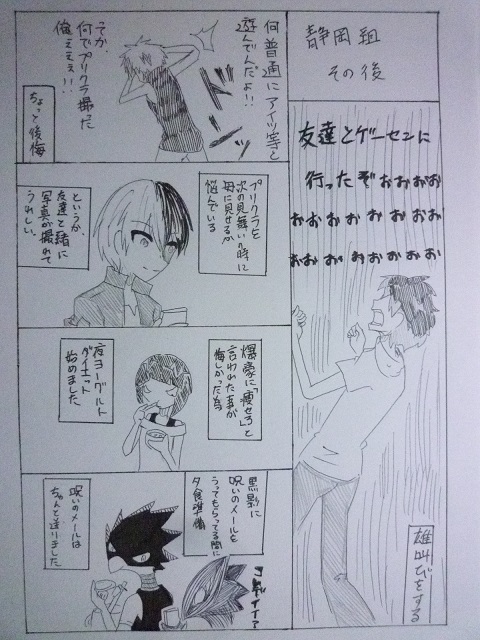 静岡組
その後
友達とゲーセンに
行ったぞおおおお
おおおおおおおお
おおおおおおおお
雄叫びをする
何普通にアイツ等と
遊んでんだよ!!
てか、
何でプリクラ撮った
俺ェェェ!!
ちょっと後悔
プリクラを
次の見舞いの時に
母に見せるか
悩んでいる
というか、
友達と一緒に
写真が撮れて
うれしい。
爆豪に「痩せろ」と
言われた事が
悔しかった為
夜ヨーグルト
ダイエット
始めました
黒影に
呪いのメールを
うってもらってる間に
夕食準備
コレデイイ?
呪いのメールは
ちゃんと送りました